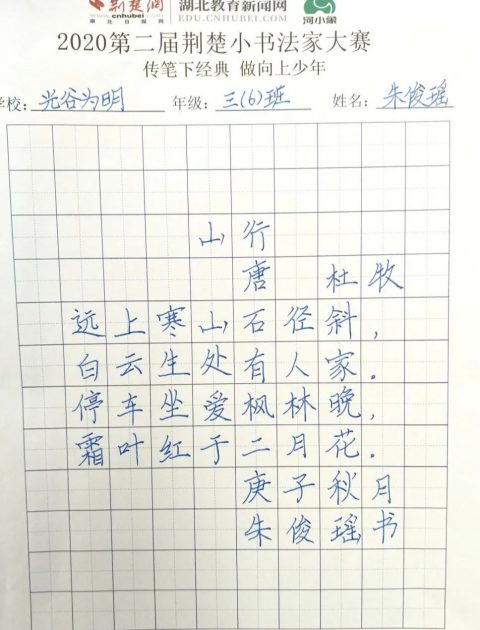 荆楚网
www.cnhubei.com
湖北日报网
湖北教育新闻网
EDU.CNHUBEI.COM
河小象
2020第二届荆楚小书法家大赛
传笔下经典 做向上少年
学校：光谷为明 年级：三(6)班 姓名：朱俊瑶
山行
唐 杜牧
远上寒山石径斜，
白云生处有人家．
停车坐爱枫林晚，
霜叶红于二月花．
庚子秋月
朱俊瑶书